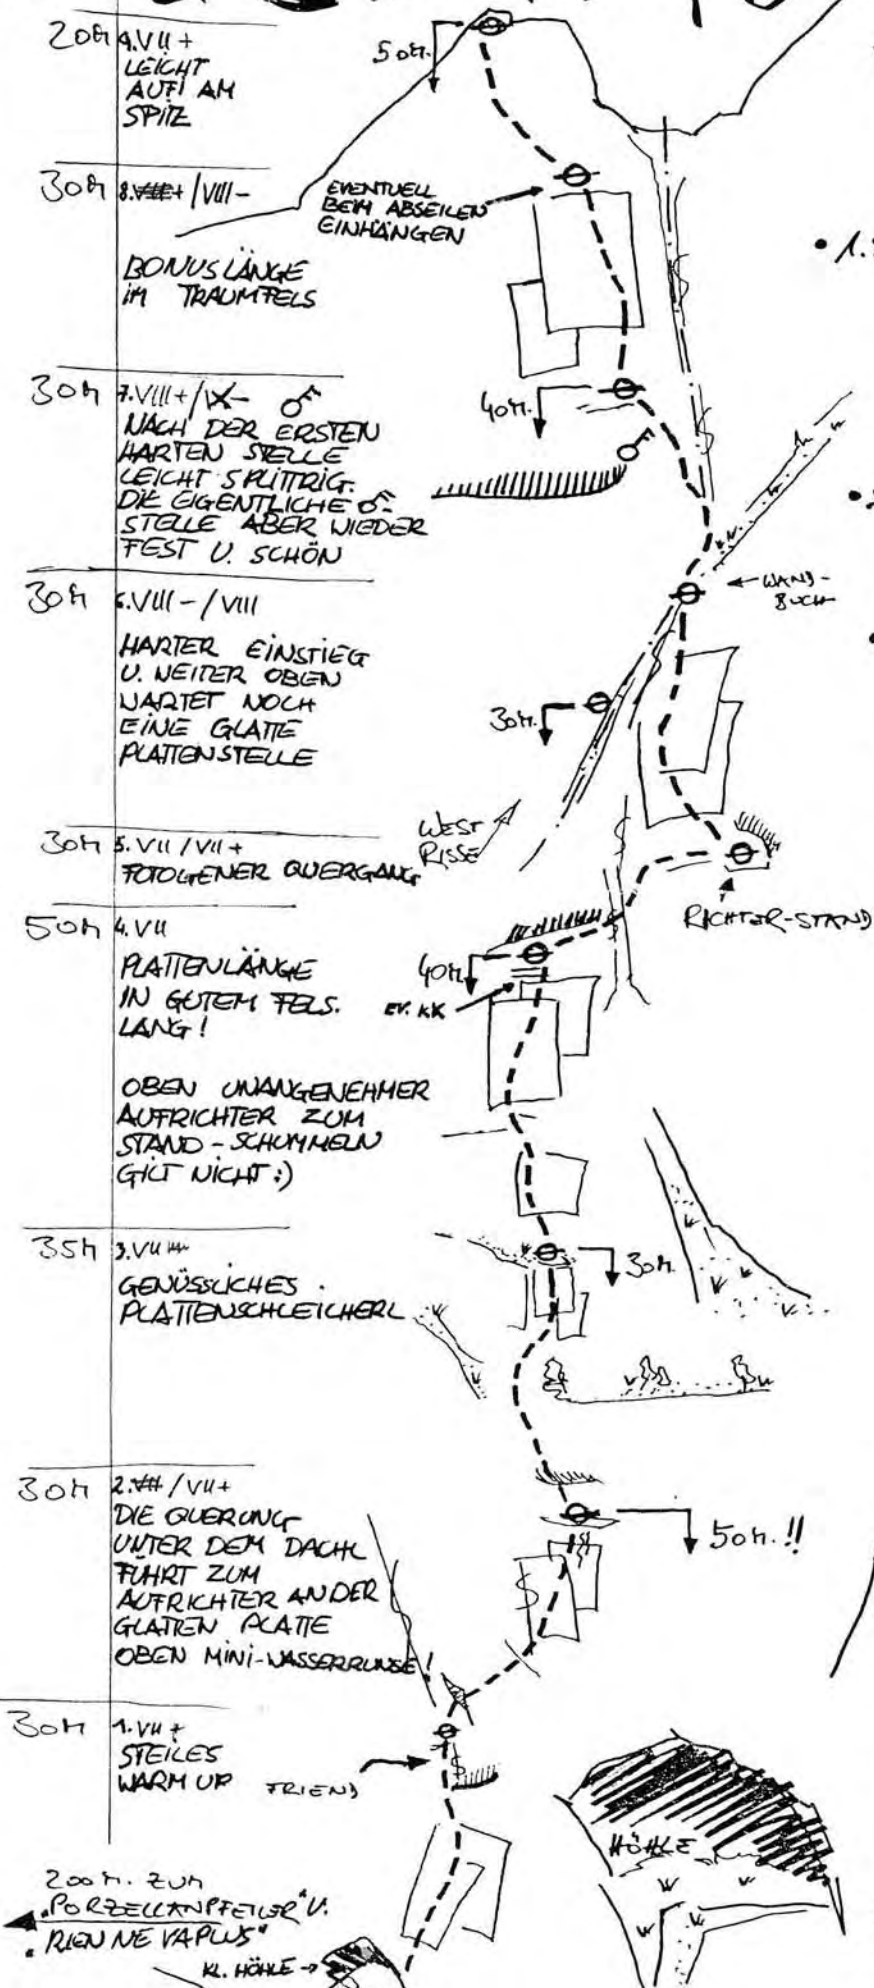 20M 9.VII+
LEICHT
AUFI AM
SPITZ
50M.
30M 8. /VIII-
EVENTUELL
BEIM ABSEILEN
EINHÄNGEN
BONUSLÄNGE
IM TRAUMFELS
• 1.
30M 7.VIII+/IX-
NACH DER ERSTEN
HARTEN STELLE
LEICHT SPLITTRIG.
DIE EIGENTLICHE
STELLE ABER WIEDER
FEST U. SCHÖN
40M.
30M 6.VIII-/VIII
WAND-
BUCH
HARTER EINSTIEG
U. WEITER OBEN
WARTET NOCH
EINE GLATTE
PLATTENSTELLE
30M.
WEST
RISSE
30M 5.VII/VII+
FOTOGENER QUERGANG
RICHTER-STAND
50M 4.VII
PLATTENLÄNGE
IN GUTEM FELS.
LANG!
40M
EV. KK
OBEN UNANGENEHMER
AUFRICHTER ZUM
STAND-SCHUMMELN
GILT NICHT:)
35M 3.VII
GENÜSSLICHES
PLATTENSCHLEICHERL
30M.
30M 2. /VII+
DIE QUERUNG
UNTER DEM DACHL
FÜHRT ZUM
AUFRICHTER AN DER
GLATTEN PLATTE
OBEN MINI-WASSERRUNSE!
50M.!!
30M 1.VII+
STEILES
WARM UP
FRIEND
HÖHLE
200M. ZUM
"PORZELLANPFEILER" U.
"RIEN NE VA PLUS"
KL. HÖHLE